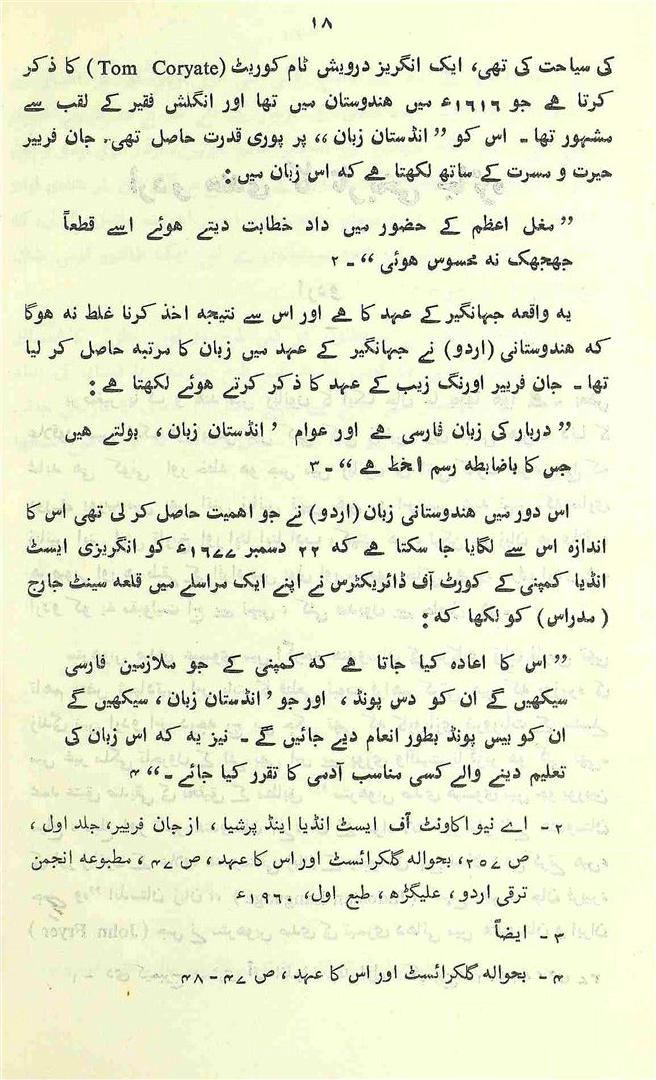 ۱۸
کی سیاحت کی تھی، ایک انگریز درویش ٹام کوریٹ (Tom Coryate) کا ذکر
کرتا ہے جو ۱۶۱۶ء میں ہندوستان میں تھا اور انگلش فقیر کے لقب سے
مشہور تھا ۔ اس کو ”انڈستان زبان“ پر پوری قدرت حاصل تھی۔ جان فریر
حیرت و مسرت کے ساتھ لکھتا ہے کہ اس زبان میں:
”مغل اعظم کے حضور میں داد خطابت دیتے ہوئے اسے قطعاً
جھجھک نہ محسوس ہوئی“ ۔ ۲
یہ واقعہ جہانگیر کے عہد کا ہے اور اس سے نتیجہ اخذ کرنا غلط نہ ہوگا
کہ ہندوستانی (اردو) نے جہانگیر کے عہد میں زبان کا مرتبہ حاصل کر لیا
تھا ۔ جان فریر اورنگ زیب کے عہد کا ذکر کرتے ہوئے لکھتا ہے:
”دربار کی زبان فارسی ہے اور عوام ’انڈستان زبان‘ بولتے ہیں
جس کا باضابطہ رسم الخط ہے“ ۔ ۳
اس دور میں ہندوستانی زبان (اردو) نے جو اہمیت حاصل کر لی تھی اس کا
اندازہ اس سے لگایا جا سکتا ہے کہ ۲۲ دسمبر ۱۶۷۷ء کو انگریزی ایسٹ
انڈیا کمپنی کے کورٹ آف ڈائریکٹرس نے اپنے ایک مراسلے میں قلعہ سینٹ جارج
(مدراس) کو لکھا کہ:
”اس کا اعادہ کیا جاتا ہے کہ کمپنی کے جو ملازمین فارسی
سیکھیں گے ان کو دس پونڈ، اور جو ’انڈستان زبان‘ سیکھیں گے
ان کو بیس پونڈ بطور انعام دیے جائیں گے ۔ نیز یہ کہ اس زبان کی
تعلیم دینے والے کسی مناسب آدمی کا تقرر کیا جائے ۔“ ۴
۲ ۔ اے نیو اکاونٹ آف ایسٹ انڈیا اینڈ پرشیا، از جان فریر، جلد اول،
ص ۲۵۷، بحوالہ گلکرائسٹ اور اس کا عہد، ص ۴۷، مطبوعہ انجمن
ترقی اردو، علیگڑھ، طبع اول، ۱۹۶۰ء
۳ ۔ ایضاً
۴ ۔ بحوالہ گلکرائسٹ اور اس کا عہد، ص ۴۷ ۔ ۴۸